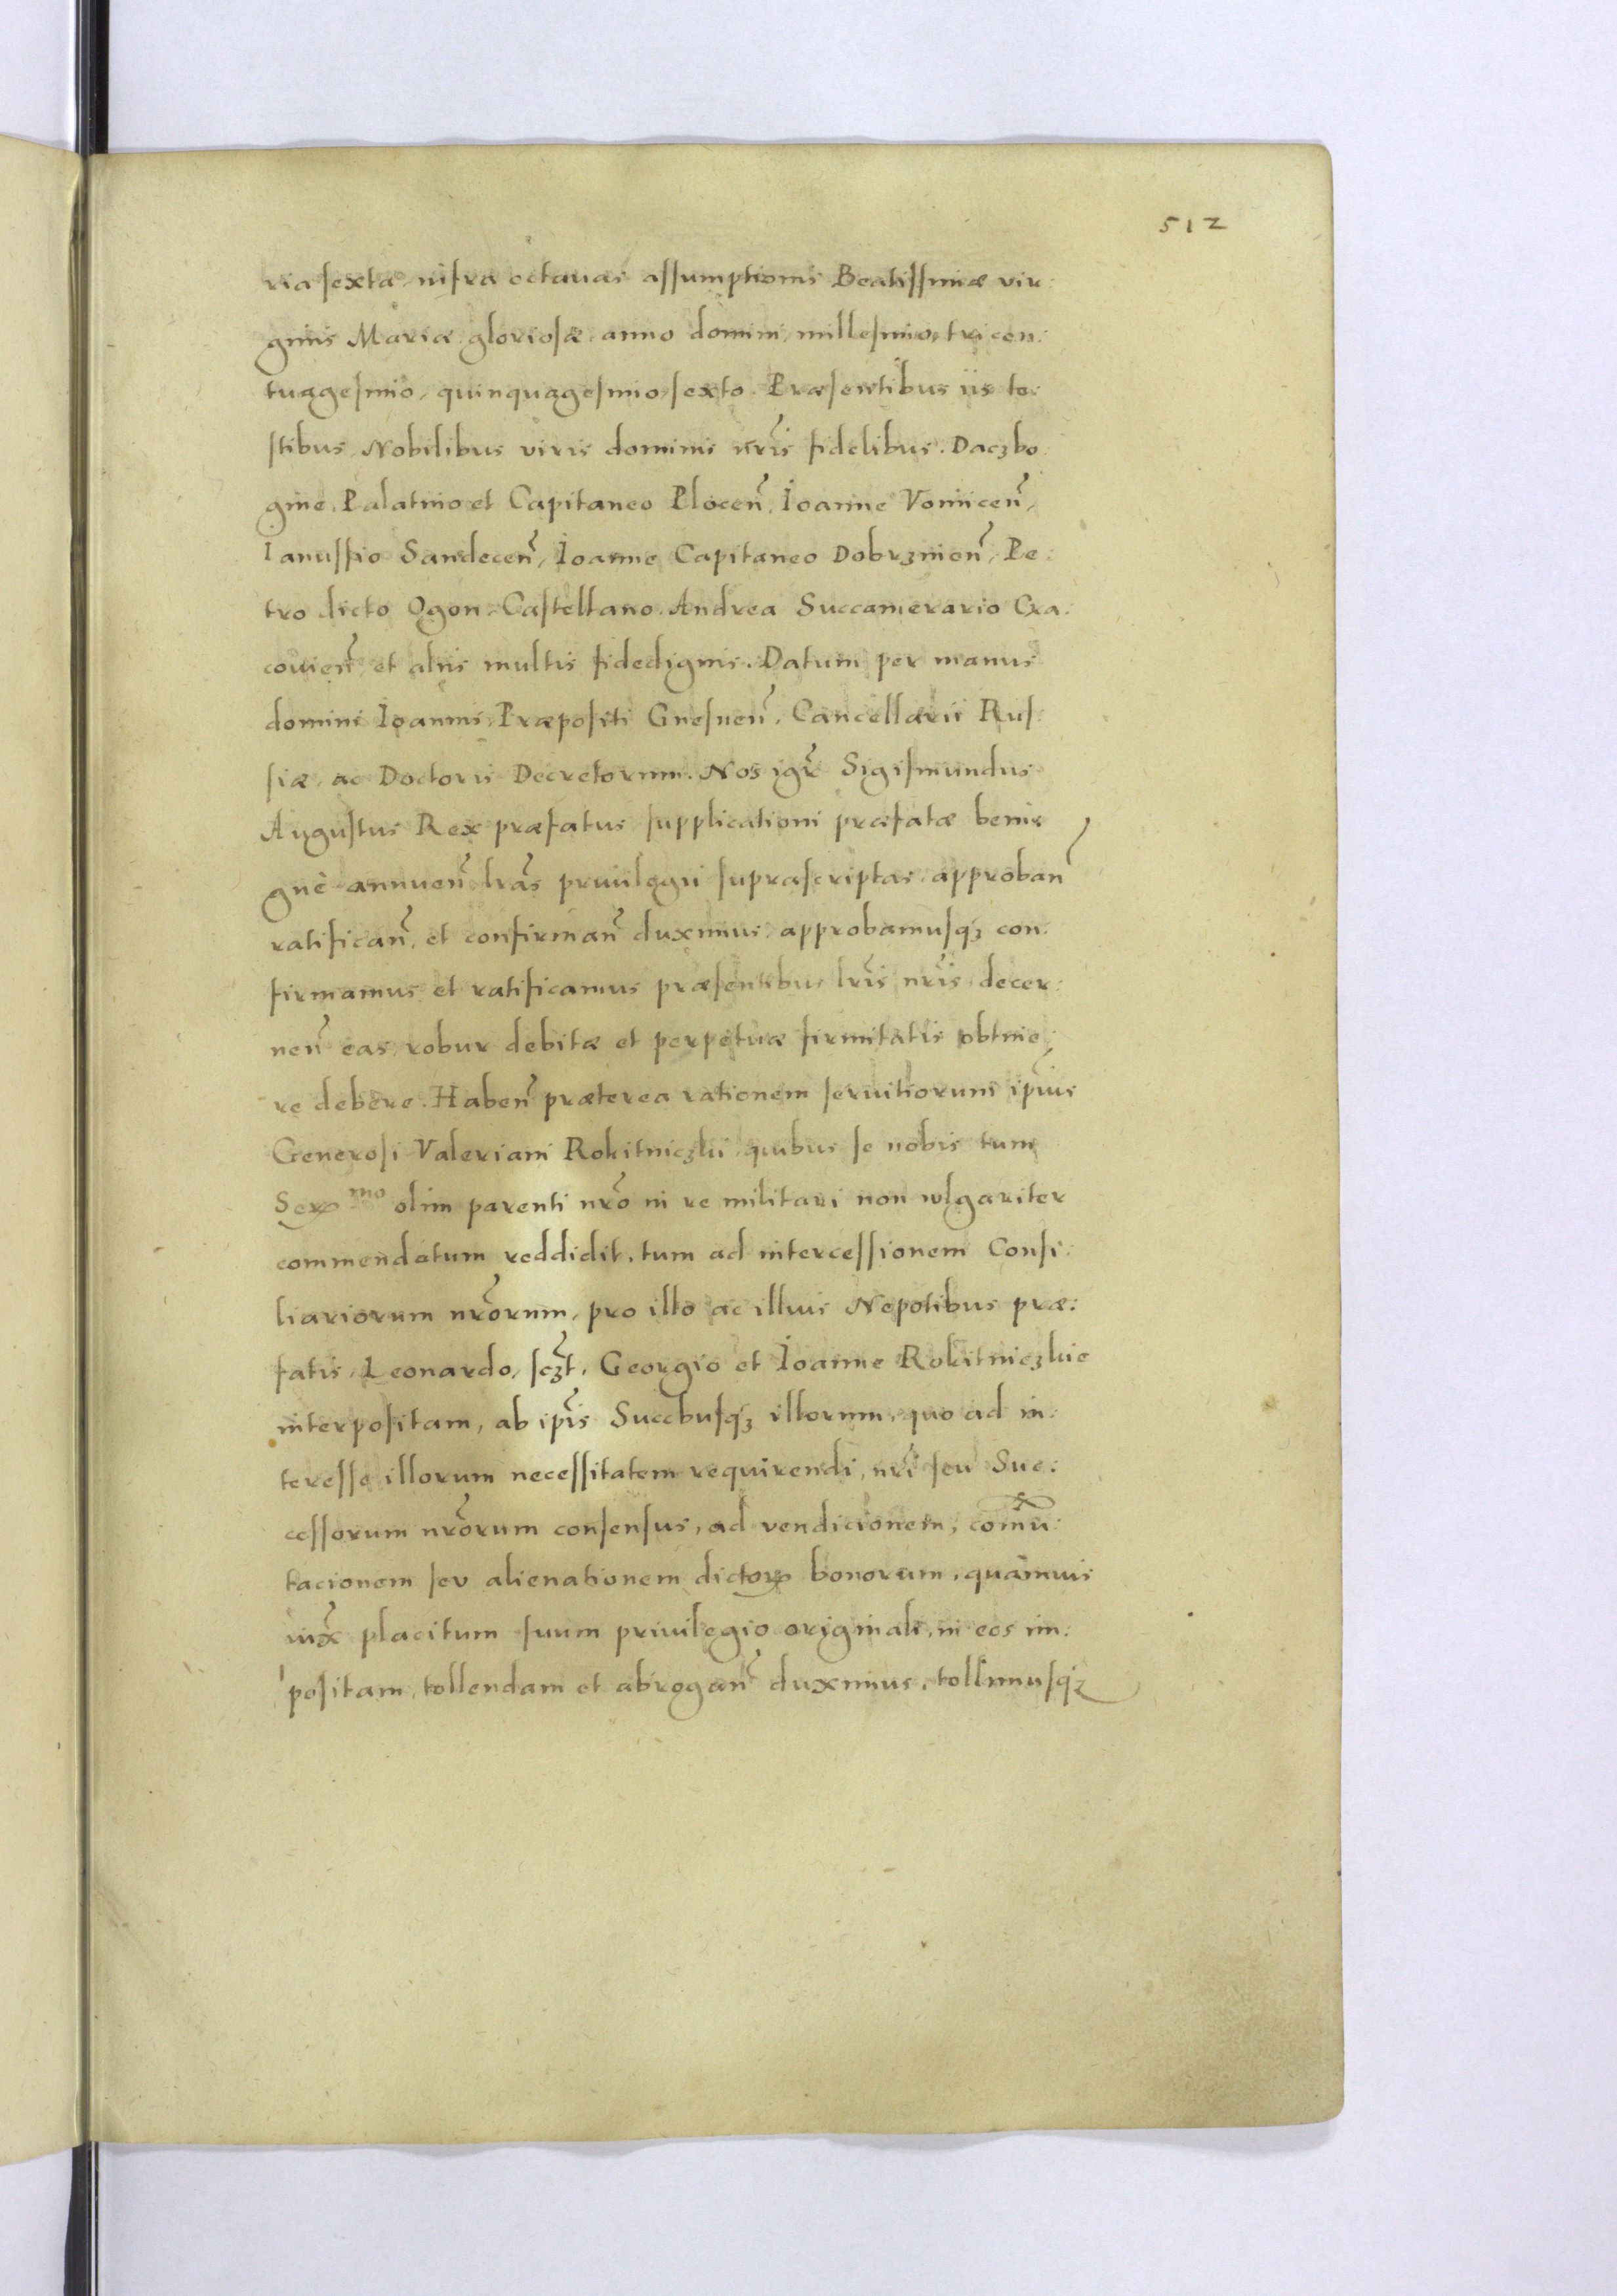 512
ria sexta infra octauas assumptionis Beatissimæ vir:
ginis Mariæ gloriosæ anno domini millesimo, tricen:
tuagesimo, quinquagesimo, sexto. Præsentibus iis te:
stibus Nobilibus viris dominis nr̃is fidelibus. Daczbo:
gine, Palatino et Capitaneo Plocen̄, Ioanne Voinicen̄,
Ianussio Sandecen̄, Ioanne Capitaneo Dobrznien̄, Pe:
tro dicto Ogon Castellano. Andrea Succamerario Cra:
couien̄, et aliis multis fidedignis. Datum per manus
domini Ioannis Præpositi Gnesnen̄. Cancellarii Rus:
siæ, ac Doctoris Decretorum. Nos igr̃ Sigismundus
Augustus Rex præfatus supplicationi præfatæ benis
gnè annuen̄ lrãs priuilegii suprascriptas approban̄
ratifican̄, et confirman̄ duximus, approbamusqʒ con:
firmamus et ratificamus præsentibus lr̃is nr̃is, decer:
nen̄ eas robur debitæ et perpetuæ firmitatis obtine,
re debere. Haben̄ præterea rationem seruitiorum ip̃ius
Generosi Valeriani Rokitniczki quibus se nobis tum
Seꝝ mo olim parenti nrõ in re militari non wlgariter
commendatum reddidit, tum ad intercessionem Consi:
liariorum nrõrum, pro illo ac illius Nepotibus præ:
fatis, Leonardo, scʒt̃, Georgio et Ioanne Rokitniczkie
interpositam, ab ip̃is Succbusqʒ illorum, quo ad in:
teresse illorum necessitatem requirendi, nr̃i seu Suc:
cessorum nrõrum consensus, ad vendicionem, com̃u:
tacionem seu alienationem dictoꝝ bonorum, quamuis
iux̃ placitum suum priuilegio originali, in eos im:
positam, tollendam et abrogan̄ duximus, tollimusqʒ